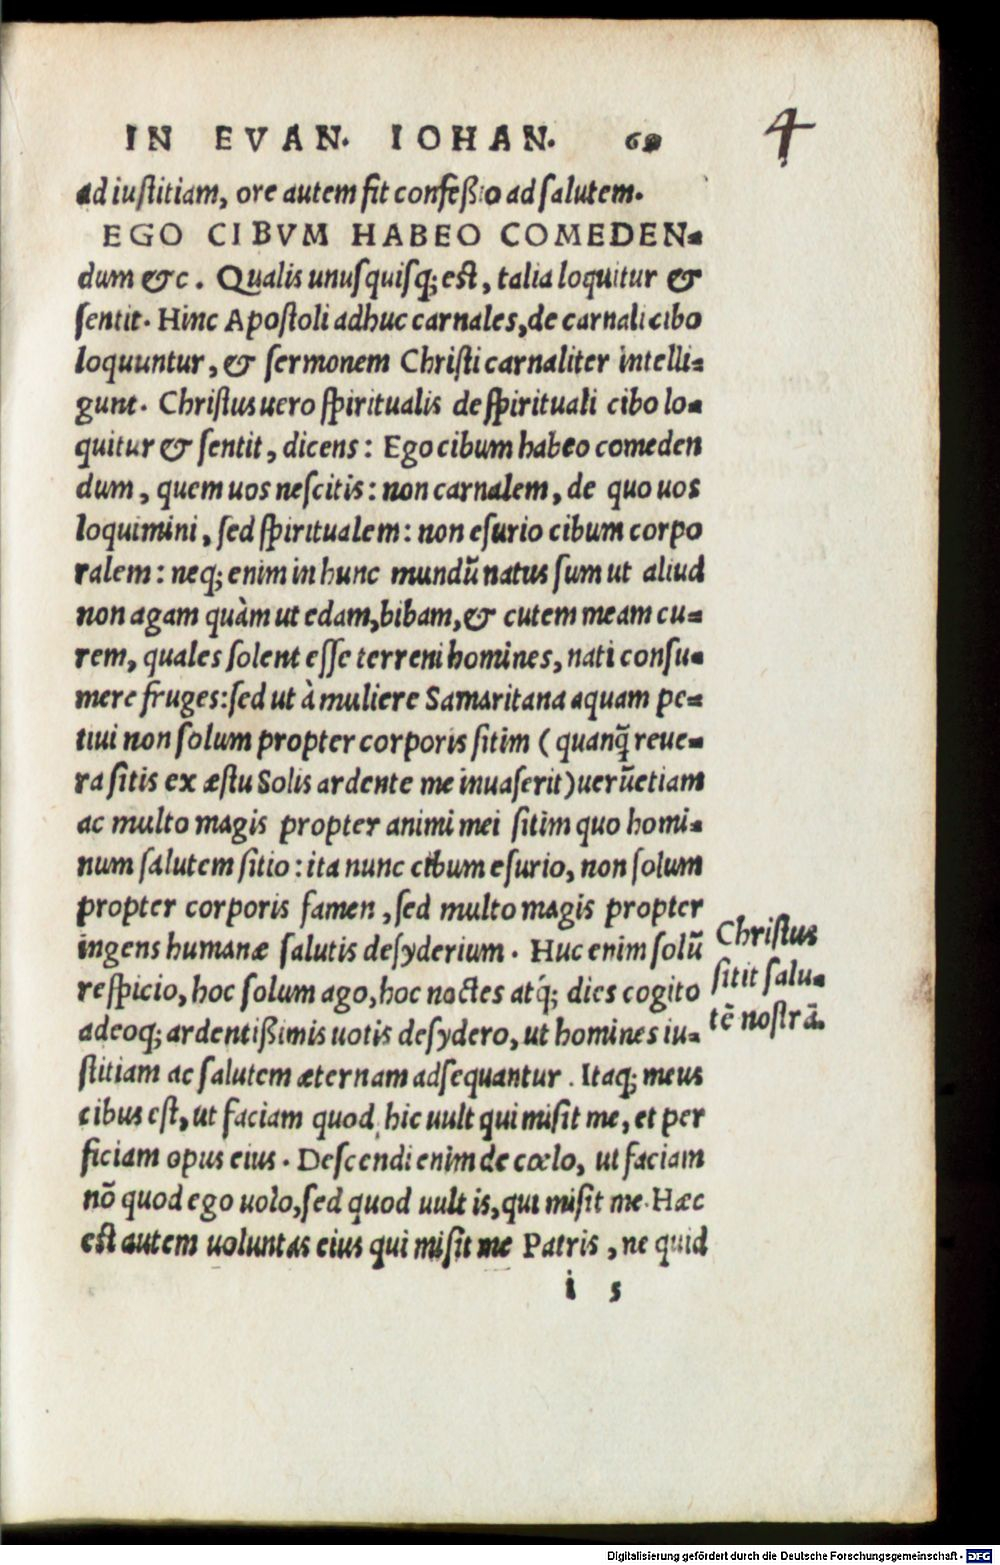 IN EVAN. IOHAN. 69
4
ad iuſtitiam, ore autem fit confeßio ad ſalutem.
EGO CIBVM HABEO COMEDEN-
dum &c. Qualis unuſquiſq; eſt, talia loquitur &
ſentit. Hinc Apoſtoli adhuc carnales, de carnali cibo
loquuntur, & ſermonem Chriſti carnaliter intelli-
gunt. Chriſtus uero ſpiritualis de ſpirituali cibo lo-
quitur & ſentit, dicens: Ego cibum habeo comeden
dum, quem uos neſcitis: non carnalem, de quo uos
loquimini, ſed ſpiritualem: non eſurio cibum corpo
ralem: neq; enim in hunc mundũ natus ſum ut aliud
non agam quàm ut edam, bibam, & cutem meam cu-
rem, quales ſolent eſſe terreni homines, nati conſu-
mere fruges: ſed ut à muliere Samaritana aquam pe-
tiui non ſolum propter corporis ſitim (quanq̃ reue-
ra ſitis ex æſtu Solis ardente me inuaſerit) uerũ etiam
ac multo magis propter animi mei ſitim quo homi-
num ſalutem ſitio: ita nunc cibum eſurio, non ſolum
propter corporis famen, ſed multo magis propter
ingens humanæ ſalutis deſyderium. Huc enim ſolũ
reſpicio, hoc ſolum ago, hoc noctes atq́; dies cogito
adeoq; ardentißimis uotis deſydero, ut homines iu-
ſtitiam ac ſalutem æternam adſequantur. Itaq; meus
cibus eſt, ut faciam quod hic uult qui miſit me, et per
ficiam opus eius. Deſcendi enim de cœlo, ut faciam
nõ quod ego uolo, ſed quod uult is, qui miſit me. Hæc
eſt autem uoluntas eius qui miſit me Patris, ne quid
i 5
Chriſtus
ſitit ſalu-
tẽ noſtrã.
Digitalisierung gefördert durch die Deutsche Forschungsgemeinschaft - DFG